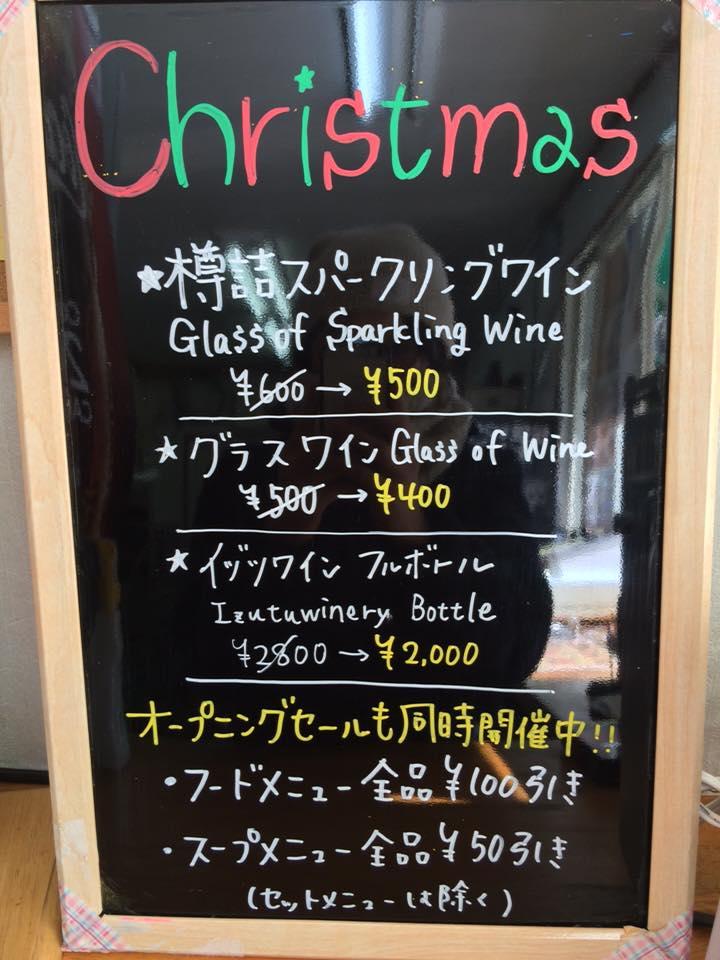 Christmas
★樽詰スパークリングワイン
Glass of Sparkling Wine
¥600→¥500
★グラスワイン Glass of Wine
¥500→¥400
★イヅツワイン フルボトル
Izutuwinery Bottle
¥2800→¥2,000
オープニングセールも同時開催中!!
・フードメニュー全品¥100引き
・スープメニュー全品¥50引き
(セットメニューは除く)